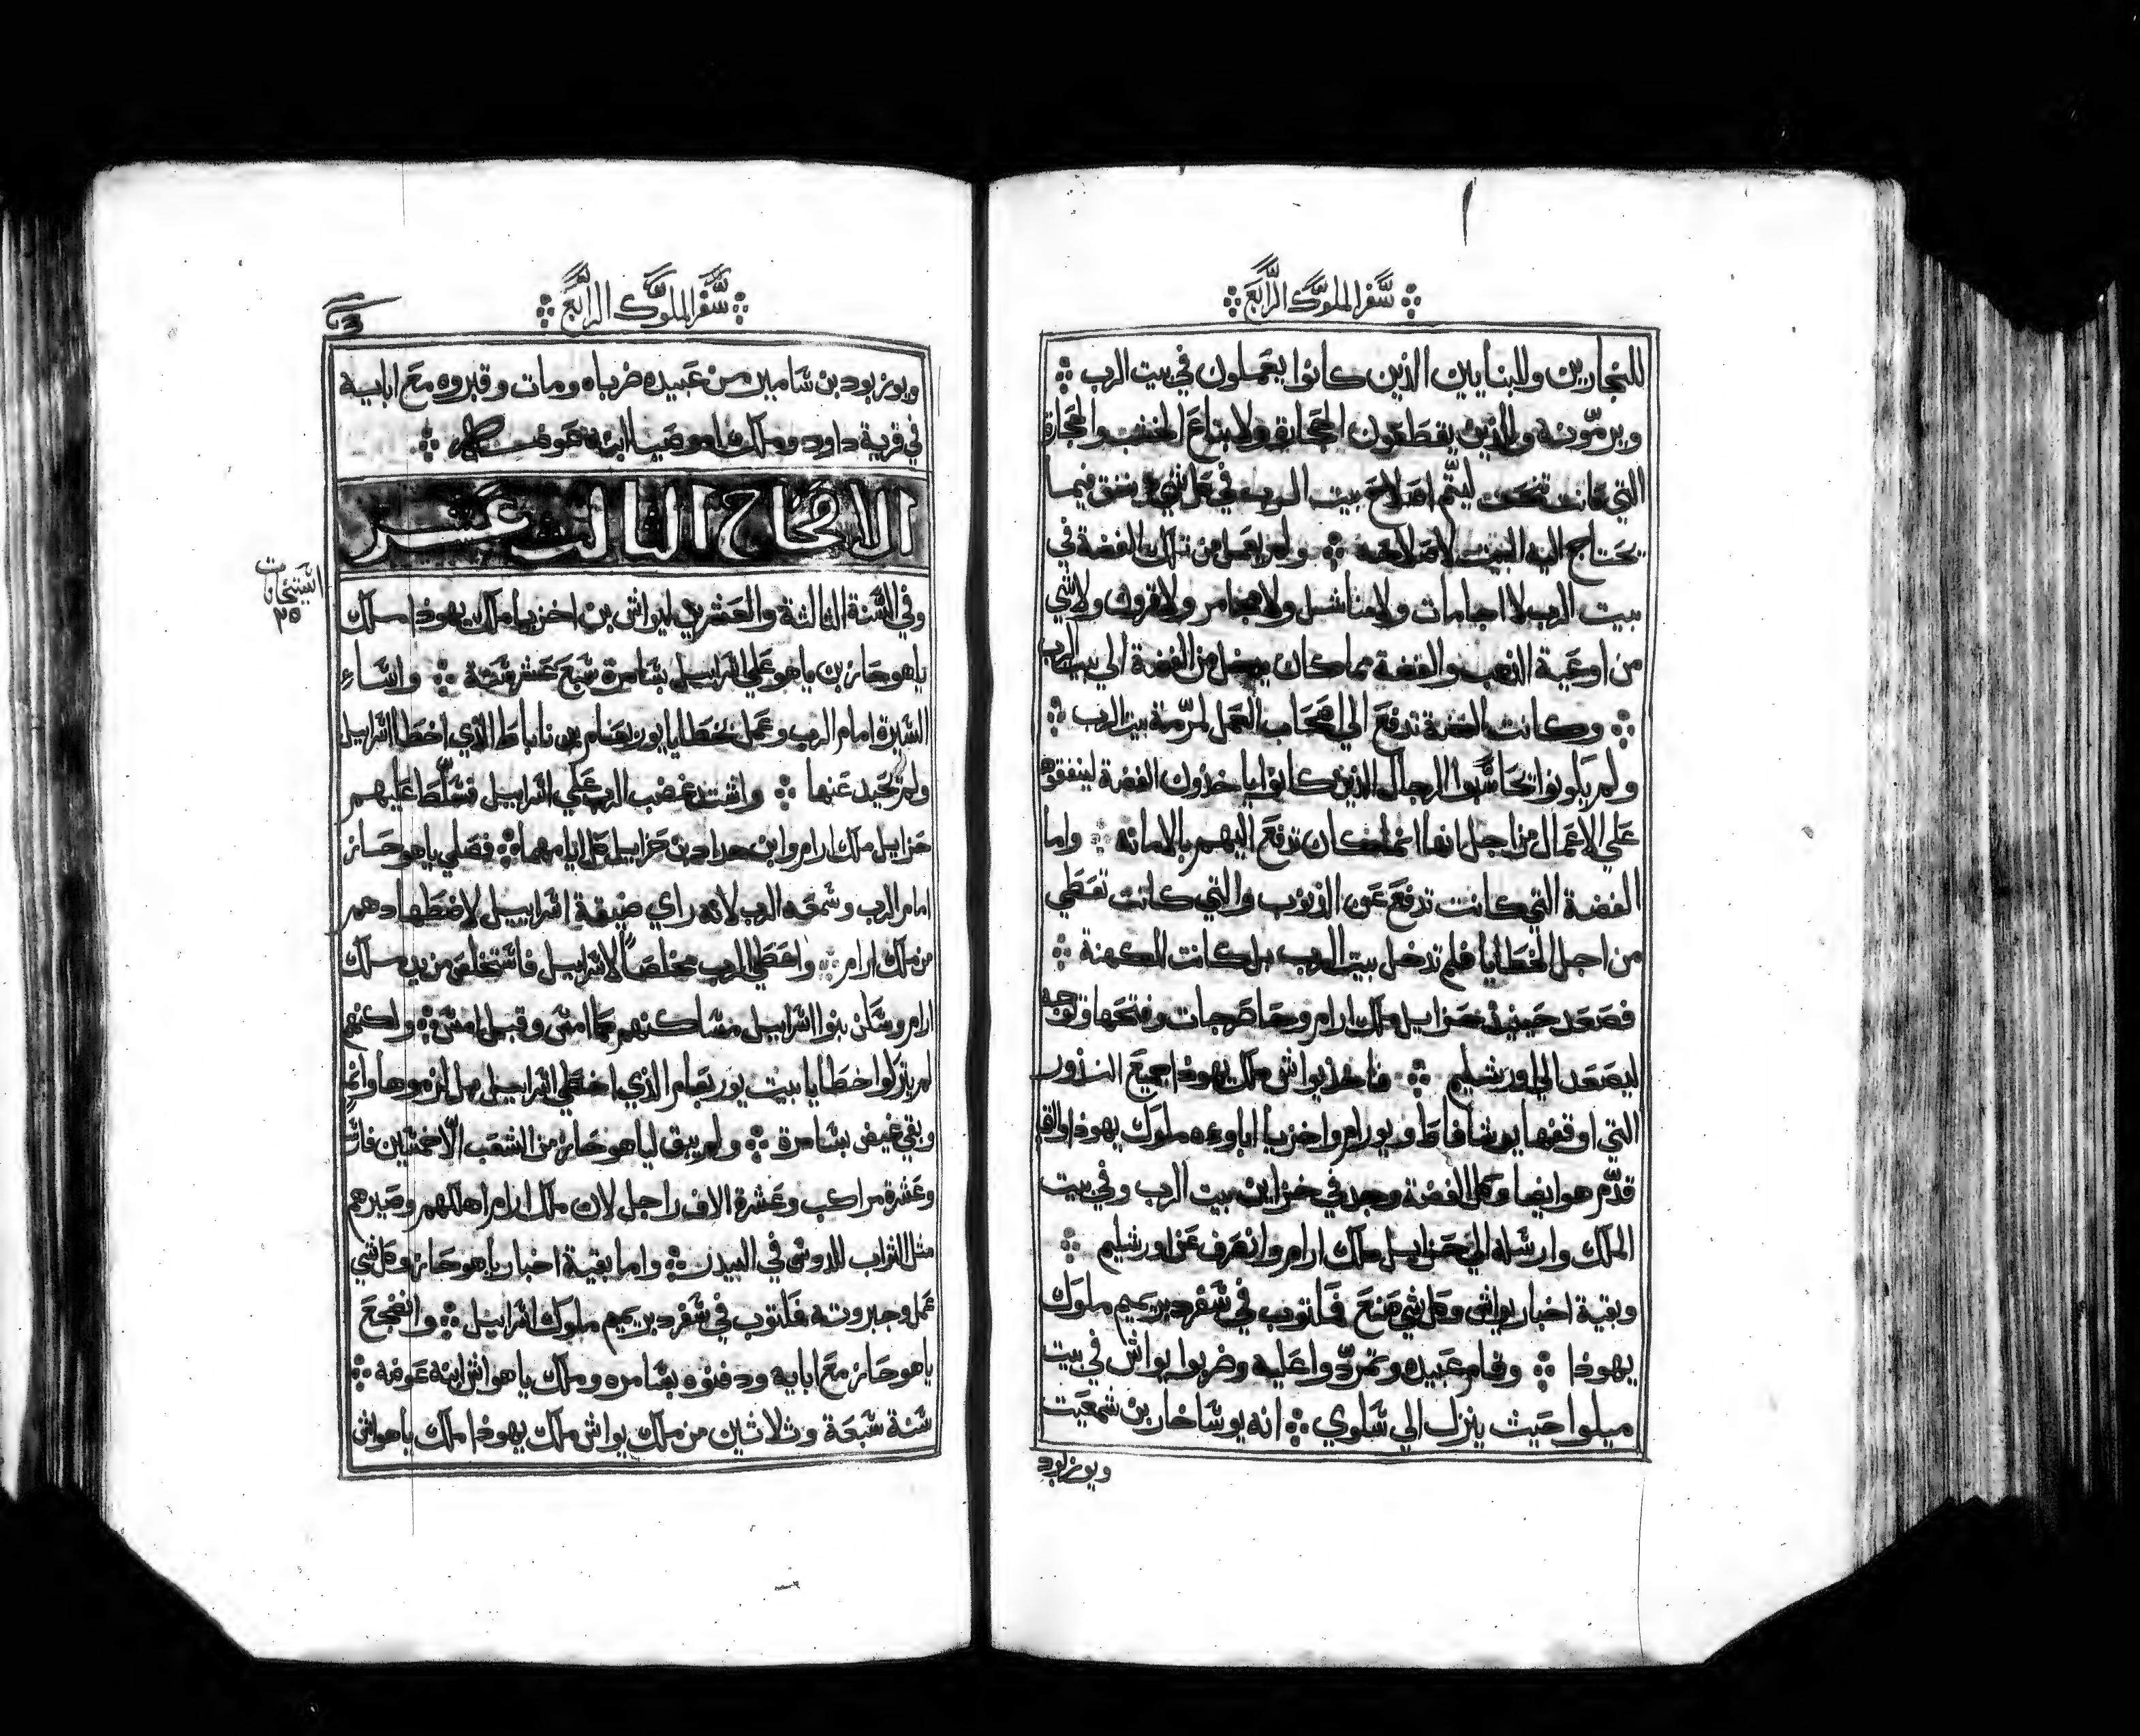 سفر الملوك الرابع
للنجارين وللبنايين الذين كانوا يعملون في بيت الرب
ويرمّونه والذين يقطعون الحجارة ولابتاع الخشب والحجارة
التي كانت تنحت ليتم اصلاح بيت الرب في كل شي ينفق فيما
يحتاج اليه البيت لاصلاحه ولم يعمل من تلك الفضة في
بيت الرب لا اجامات ولا مناشل ولا مجامر ولا قرون ولا شي
من اوعية الذهب والفضة مما كان يدخل من الفضة الي بيت الرب
وكانت الفضة تدفع الي اصحاب العمل لمرّمة بيت الرب
ولم يكونوا يحاسبوا الرجال الذين كانوا ياخذون الفضة لينفقوها
علي الاعمال من اجل انها انما كان تدفع اليهم بالامانه واما
الفضة التي كانت تدفع عن الذنوب والتي كانت تعطي
من اجل الخطايا فلم تدخل بيت الرب بل كانت للكهنة
فصعد حينيذ حزاييل ملك ارام وحاصر جات وفتحها وتوجه
ليصعد الي اورشليم فاخذ يواش ملك يهوذا جميع النذور
التي اوقفها يوشافاط ويورام واخزيا اباوءه ملوك يهوذا والتي
قدّم هو ايضا وكل الفضة وجد في خزاين بيت الرب وفي بيت
الملك وارسله الي حزاييل ملك ارام وانصرف عن اورشليم
وبقية اخبار يواش وكل شي صنع فمكتوب في سفر دبريميم ملوك
يهوذا وقام عبيده وتمردّوا عليه وضربوا يواش في بيت
ميلوا حيث ينزل الي سلوي انه يوساخار بن شمعيت
ويوزبود
سفر الملوك الرابع
ويوزبود بن شامير من عبيده ضرباه ومات وقبروه مع ابايه
في قرية داود وملك اموصيا ابنه عوضه
الافتتاح الثالث عشر
وفي السنة الثالثة والعشرين ليواش بن اخزيا ملك يهوذا ملك
ياهوحاز بن ياهو علي اسراييل بشامرة سبع عشر سنة واساء
السيرة امام الرب وعمل بخطايا يوربعام بن ناباط الذي اخطا اسراييل
ولم يحيد عنها واشتد غضب الرب علي اسراييل فسلّط عليهم
حزاييل ملك ارام وابن حداد بن حزاييل كل ايامهما فصلي ياهوحاز
امام الرب وسمعه الرب لانه راي ضيقة اسراييل لاضطهادهم
من ملك ارام واعطي الرب مخلصاً لاسراييل فاستخلص من يد ملك
ارام وسكن بنوا اسراييل مساكنهم كما امس وقبل امس ولكنهم
لم يتركوا خطايا بيت يوربعام الذي اخطي اسراييل بل لزموها وانه
وبقي غيض بشامرة ولم يبق لياهوحاز من الشعب الّا خمسين فارس
وعشرة مراكب وعشرة الاف راجل لان ملك ارام اهلكهم وصيرهم
مثل التراب للدوس في البيدر واما بقية اخبار ياهوحاز وكل شي
عمل وجبروته فمكتوب في سفر دبريميم ملوك اسراييل وانضجع
ياهوحاز مع ابايه ودفنوه بشامره وملك ياهواش ابنه عوضه
سنة سبعة وثلاثين من ملك يواش ملك يهوذا ملك ياهواش